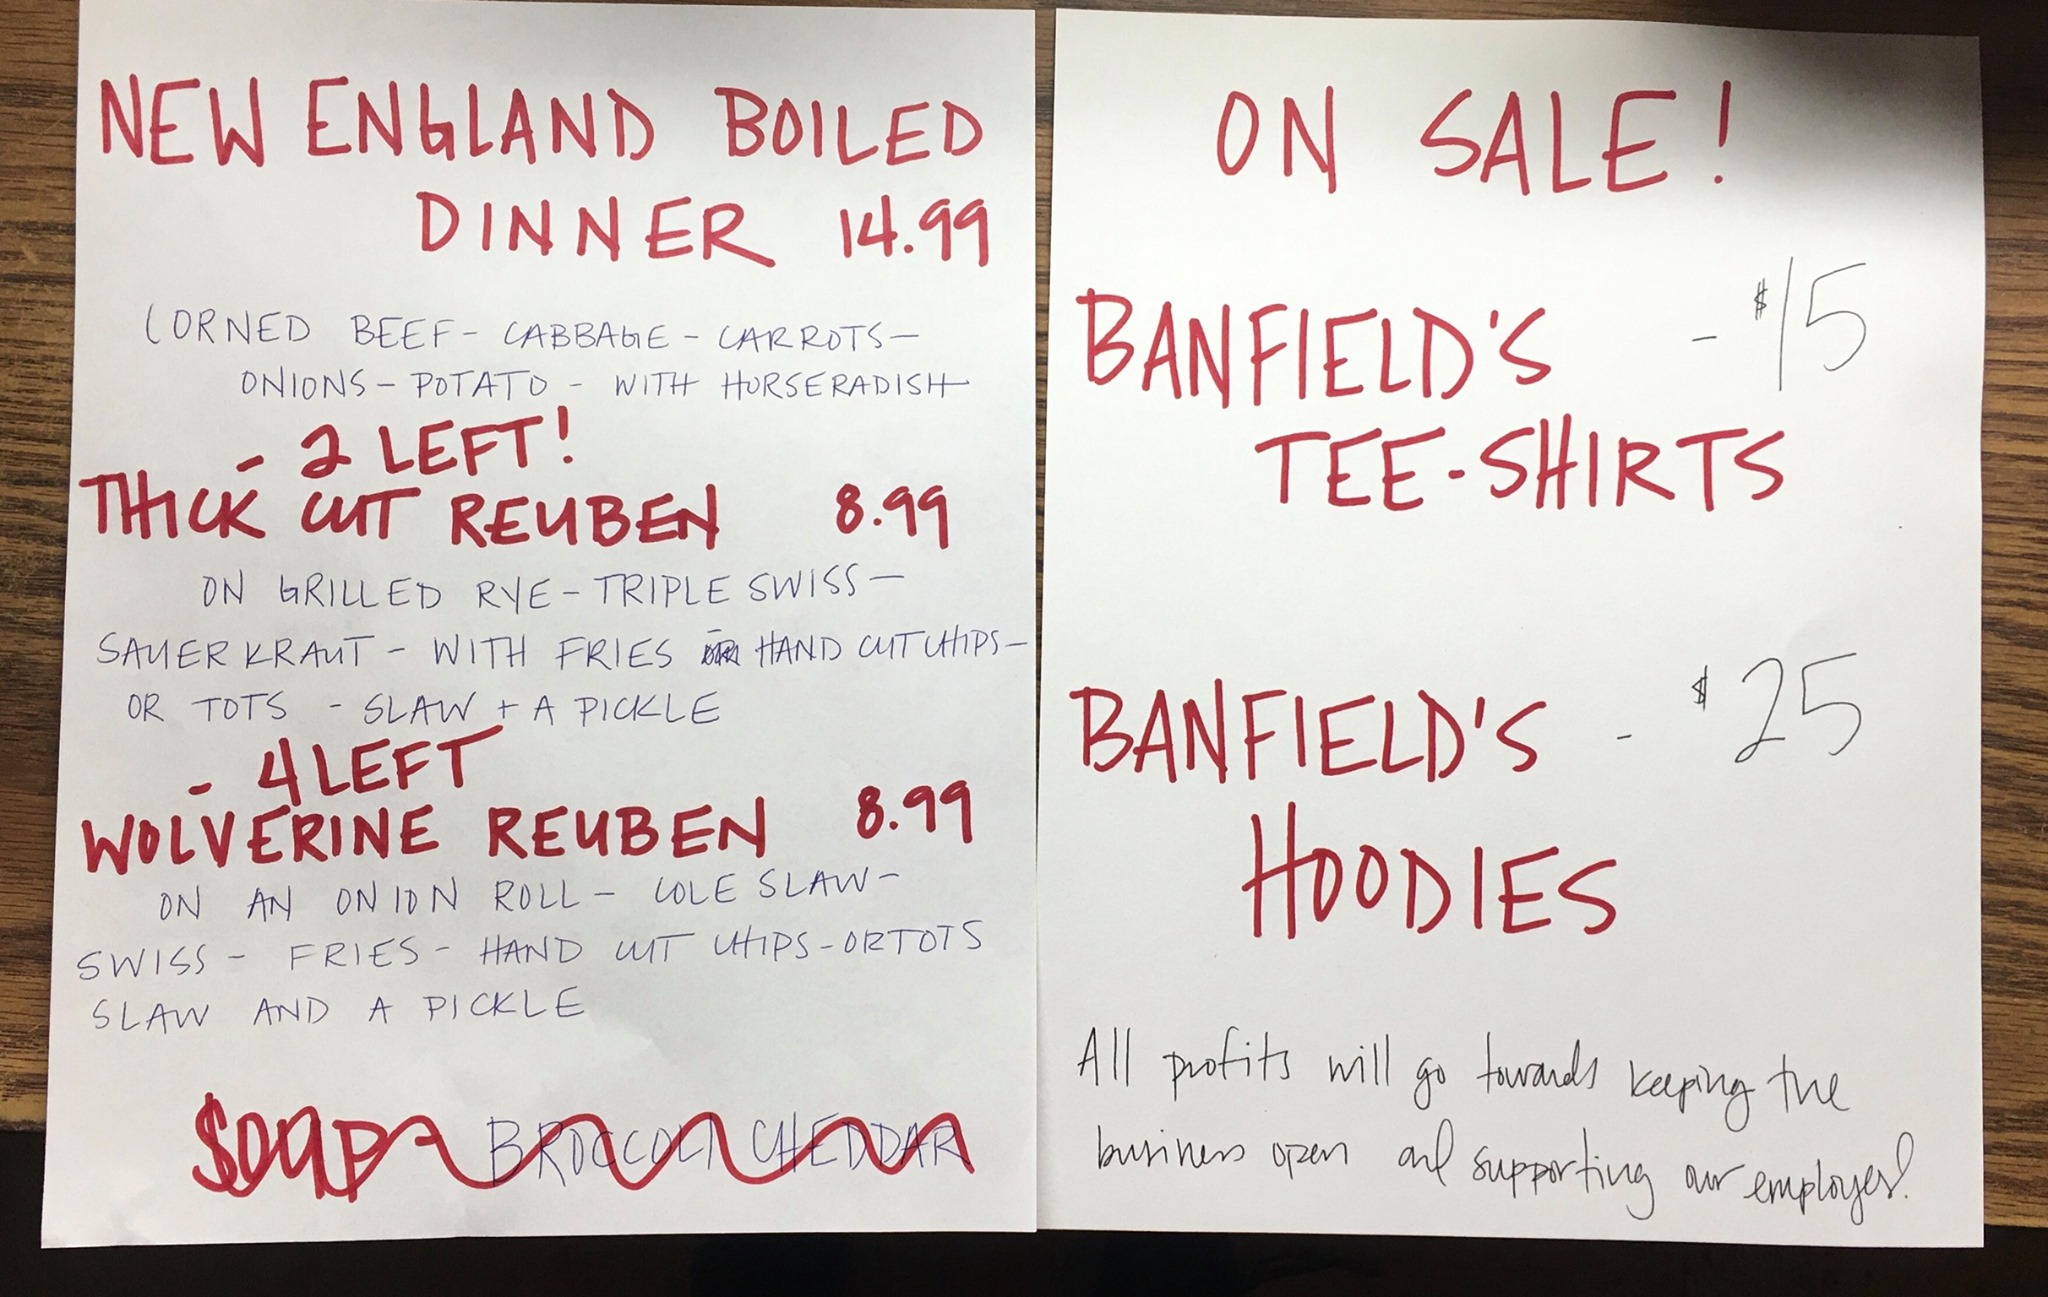 NEW ENGLAND BOILED
DINNER 14.99
CORNED BEEF - CABBAGE - CARROTS -
ONIONS - POTATO - WITH HORSERADISH
- 2 LEFT!
THICK CUT REUBEN 8.99
ON GRILLED RYE - TRIPLE SWISS -
SAUERKRAUT - WITH FRIES - HAND CUT CHIPS -
OR TOTS - SLAW + A PICKLE
- 4 LEFT
WOLVERINE REUBEN 8.99
ON AN ONION ROLL - COLE SLAW -
SWISS - FRIES - HAND CUT CHIPS - OR TOTS
SLAW AND A PICKLE
BROCCOLI CHEDDAR
ON SALE!
BANFIELD'S - $15
TEE-SHIRTS
BANFIELD'S - $25
HOODIES
All profits will go towards keeping the
business open and supporting our employees!